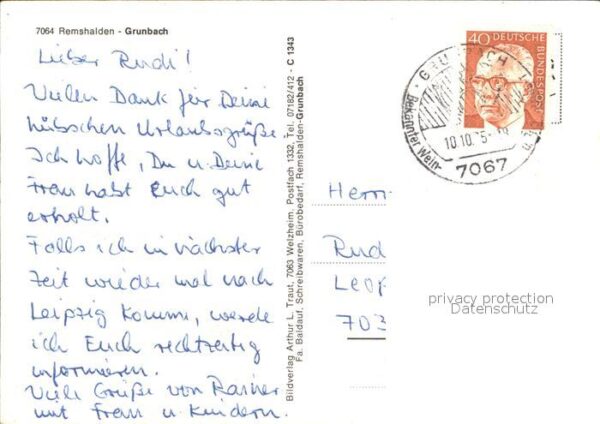 7064 Remshalden - Grunbach
Lieber Rudi!
Vielen Dank für Deine
hübschen Urlaubsgrüße.
Ich hoffe, Du u. Deine
Frau habt Euch gut
erholt.
Falls ich in nächster
Zeit wieder mal nach
Leipzig komme, werde
ich Euch rechtzeitig
informieren.
Viele Grüße von Rainer
mit Frau u. Kindern.
Bildverlag Arthur L. Traut, 7063 Welzheim, Postfach 1332, Tel. 07182/412 - C 1343
Fa. Baldauf, Schreibwaren, Bürobedarf, Remshalden-Grunbach
40 DEUTSCHE BUNDESPOST
GRUNBACH
Bekannter Wein-
10.10.75
7067
Herrn
Rud
Leop
703
privacy protection
Datenschutz